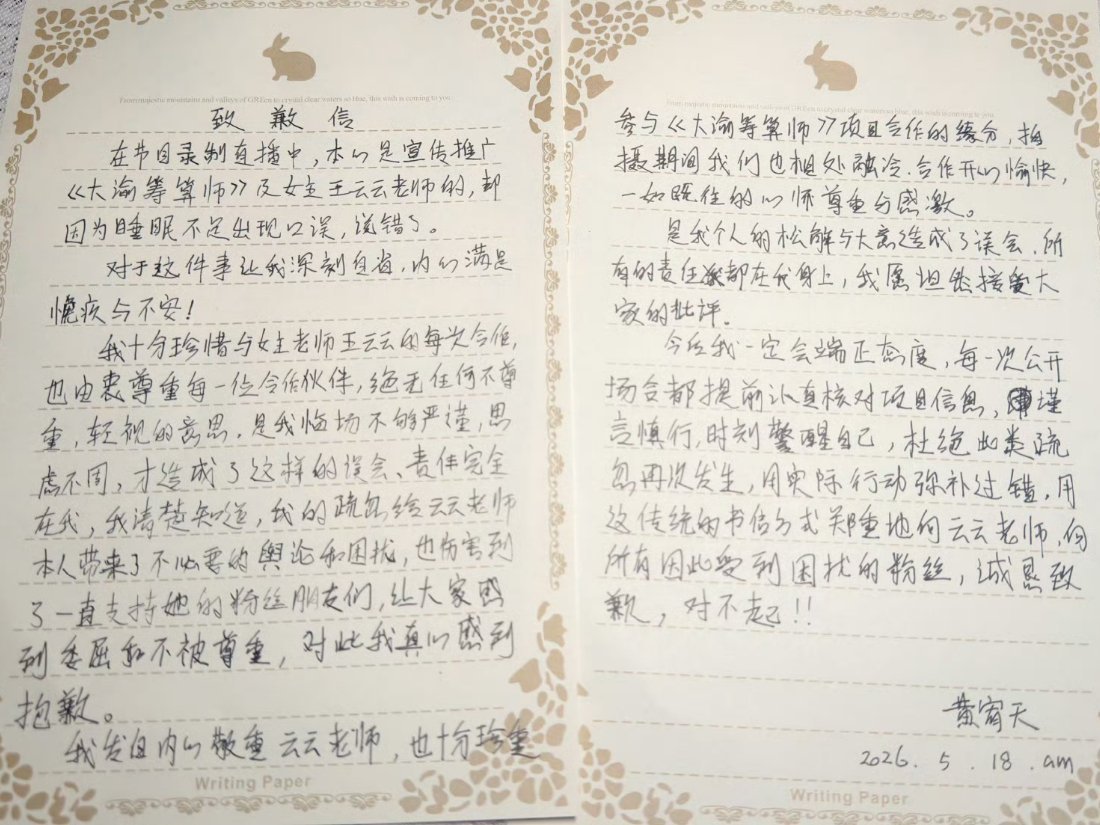 From majestic mountains and valleys of GREen to crystal clear waters so blue, this wish is coming to you.
致歉信
在节目录制直播中，本心是宣传推广
《大渝筹算师》及女主王云云老师的，却
因为睡眠不足出现口误，说错了。
对于这件事让我深刻自省，内心满是
愧疚与不安！
我十分珍惜与女主老师王云云的每次合作，
也由衷尊重每一位合作伙伴，绝无任何不尊
重，轻视的意思。是我临场不够严谨，思
虑不周，才造成了这样的误会、责任完全
在我，我清楚知道，我的疏忽给云云老师
本人带来了不必要的舆论和困扰，也伤害到
了一直支持她的粉丝朋友们，让大家感
到委屈和不被尊重，对此我真心感到
抱歉。
我发自内心敬重云云老师，也十分珍重
Writing Paper
From majestic mountains and valleys of GREen to crystal clear waters so blue, this wish is coming to you.
参与《大渝筹算师》项目合作的缘分，拍
摄期间我们也相处融洽.合作开心愉快，
一如既往的心怀尊重与感激。
是我个人的松懈与大意造成了误会.所
有的责任都在我身上，我愿坦然接受大
家的批评。
今后我一定会端正态度，每一次公开
场合都提前认真核对项目信息，谨
言慎行，时刻警醒自己，杜绝此类疏
忽再次发生，用实际行动弥补过错，用
这传统的书信方式郑重地向云云老师，向
所有因此受到困扰的粉丝，诚恳致
歉，对不起！！
黄宥天
2026.5.18.am
Writing Paper